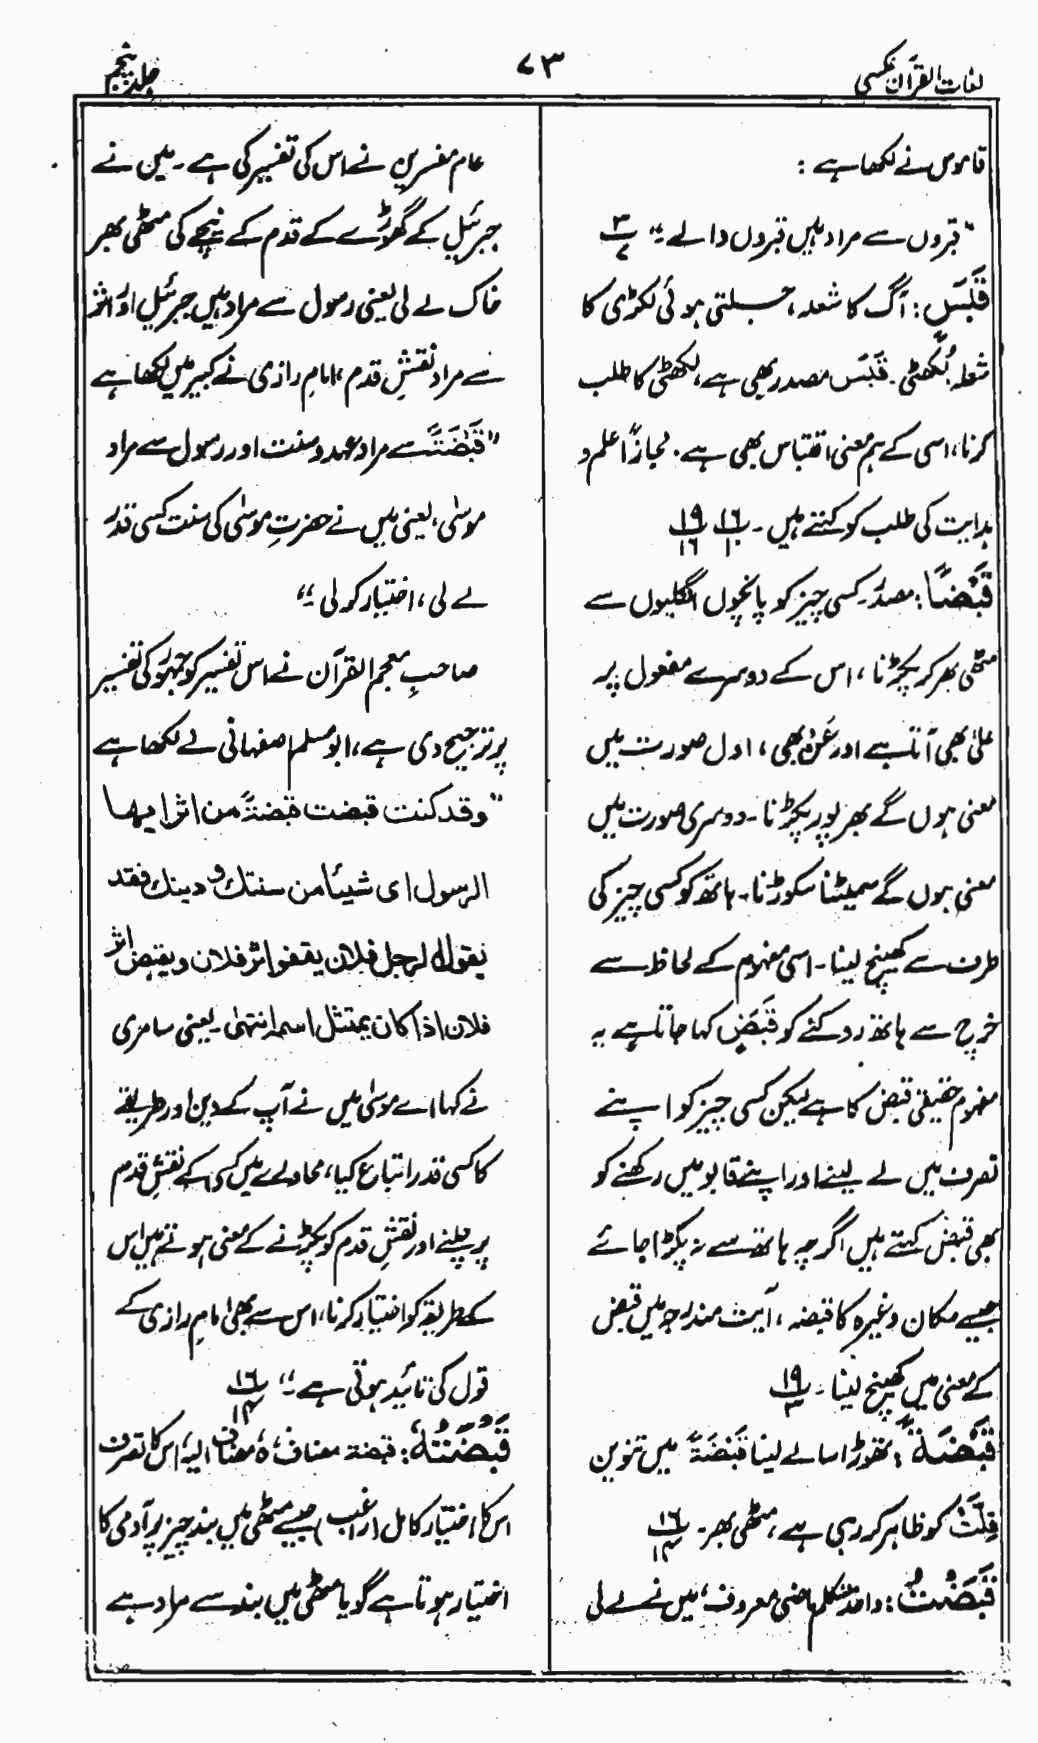 لغات القرآن عکسی
۷۳
جلد پنجم
قاموس نے لکھا ہے :
"قبروں سے مراد ہیں قبروں والے ۔" ۳/۷
قَبَسٍ : آگ کا شعلہ ، جلتی ہوئی لکڑی کا
شعلہ، لُکھٹی ۔ قَبَس مصدر بھی ہے، لکھٹی کا طلب
کرنا، اسی کے ہم معنی اقتباس بھی ہے ۔ مجازًا علم و
ہدایت کی طلب کو کہتے ہیں ۔ ۱۶/۱۰ ۱۹/۱۶
قَبْضًا : مصدر ۔ کسی چیز کو پانچوں انگلیوں سے
مٹھی بھر کر پکڑنا ، اس کے دوسرے مفعول پر
علیٰ بھی آتا ہے اور عَنْ بھی ، اول صورت میں
معنی ہوں گے بھرپور پکڑنا ۔ دوسری صورت میں
معنی ہوں گے سمیٹنا سکوڑنا ۔ ہاتھ کو کسی چیز کی
طرف سے کھینچ لینا ۔ اسی مفہوم کے لحاظ سے
خرچ سے ہاتھ روکنے کو قَبَض کہا جاتا ہے یہ
مفہوم حقیقی قبض کا ہے لیکن کسی چیز کو اپنے
تصرف میں لے لینے اور اپنے قابو میں رکھنے کو
بھی قبض کہتے ہیں اگرچہ ہاتھ سے نہ پکڑا جائے
جیسے مکان وغیرہ کا قبضہ ، آیت مندرجہ میں قبض
کے معنی میں کھینچ لینا ۔ ۱۹/۳
قَبْضَةً : تھوڑا سا لے لینا قَبْضَۃً میں تنوین
قِلَّتْ کو ظاہر کر رہی ہے، مٹھی بھر ۔ ۱۶/۱۴
قَبَضْتُ : واحد متکلم ماضی معروف، میں نے لے لی
عام مفسرین نے اس کی تفسیر کی ہے ۔ میں نے
جبرئیل کے گھوڑے کے قدم کے نیچے کی مٹھی بھر
خاک لے لی یعنی رسول سے مراد ہیں جبرئیل اور اثر
سے مراد نقشِ قدم ، امام رازی نے کبیر میں لکھا ہے
"قَبَضْتُ سے مراد عہد و سنت اور رسول سے مراد
موسیٰ، یعنی میں نے حضرتِ موسیٰ کی سنت کسی قدر
لے لی ، اختیار کر لی ۔"
صاحبِ معجم القرآن نے اس تفسیر کو جمہور کی تفسیر
پر ترجیح دی ہے، ابو مسلم اصفہانی نے لکھا ہے
"وقد کنت قبضت قبضۃً من اثر ایہا
الرسول ای شیئا من سنتک و دینک فقد
یقول الرجل فلان یقفوا اثر فلان ویقبض اثر
فلان اذا کان یمتثل اسمہ انتہیٰ ۔ یعنی سامری
نے کہا اے موسیٰ میں نے آپ کے دین اور طریقے
کا کسی قدر اتباع کیا، محاورے میں کسی کے نقشِ قدم
پر چلنے اور نقشِ قدم کو پکڑنے کے معنی ہوتے ہیں اس
کے طریقہ کو اختیار کرنا، اس سے بھی امام رازی کے
قول کی تائید ہوتی ہے ۔" ۱۶/۱۴
قَبْضَتُہٗ : قبضۃ مضاف، ہٗ مضاف الیہ، اس کا تصرف
اس کا اختیار کامل (راغب) جیسے مٹھی میں بند چیز پر آدمی کا
اختیار ہوتا ہے گویا مٹھی میں بند سے مراد ہے